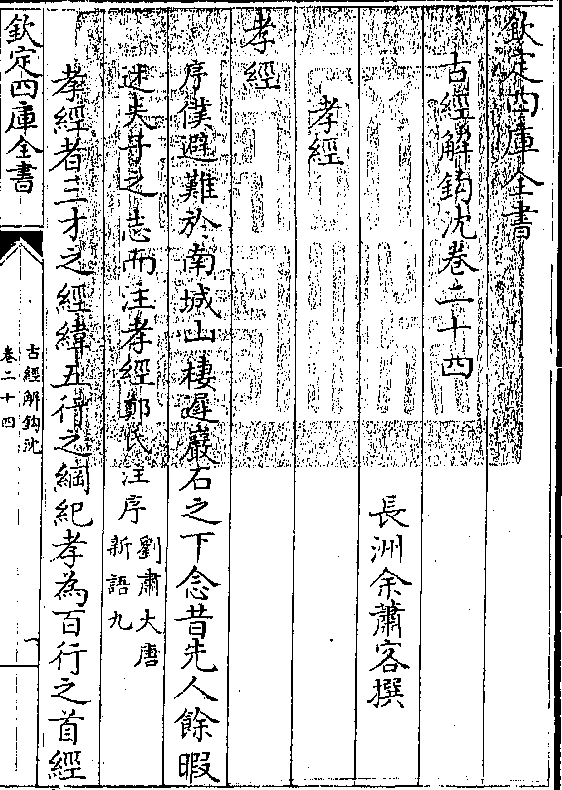 欽定四庫全書
古經解鈎沈卷二十四
長洲余蕭客撰
孝經
孝經
序僕避難於南城山棲遲巖石之下念昔先人餘暇
述夫子之志而注孝經鄭氏注序劉肅大唐新語九
孝經者三才之經緯五行之綱紀孝為百行之首經
欽定四庫全書
古經解鈎沈
卷二十四
一